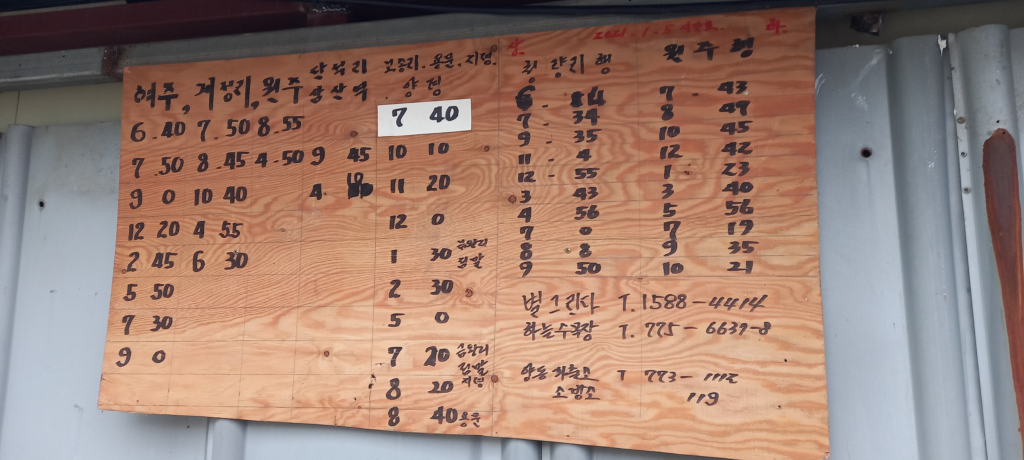 여주, 계정리, 원주
단석리
삼산역
고송리. 용문. 지평.
양평
7 40
6.40 7.50 8.55
7.50 8.45 4.50 9 45 10 10
9 0 10 40 4 11 20
12 20 4 55 12 0
2 45 6 30 1 30 금왕리 출발
5 50 2 30
7 30 5 0
9 0 7 20 금왕리 출발 지평
8 20
8 40 용문
상. 2021.1.5 하.
청량리행 원주행
6 - 14 7 - 43
7 - 34 8 49
9 - 35 10 45
11 - 4 12 42
12 - 55 1 - 23
3 43 3 40
4 56 5 56
7 0 7 19
8 8 9 35
9 50 10 21
T. 1588-4414
하늘수목장 T. 775-6637-8
양동파출소 T 773-1112
소방소 119